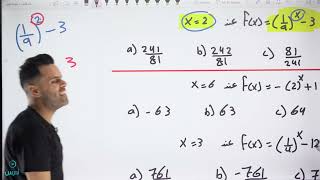 (1/9)² - 3
3
x = 2 عند f(x) = (1/9)ˣ - 3
a) 241/81 b) 242/81 c) 81/241
x = 6 عند f(x) = -(2)ˣ + 1
a) -63 b) 63 c) 64
x = 3 عند f(x) = (1/4)ˣ - 12
a) 761 b) -761 c) 7